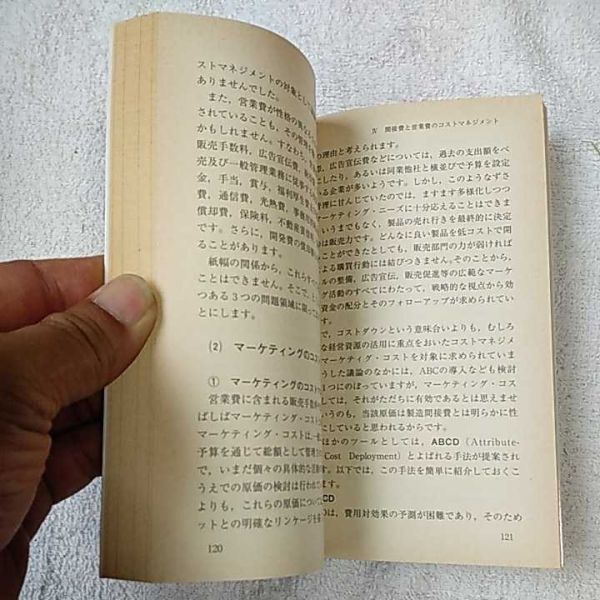 ストマネジメントの対象として
ありませんでした。
また、営業費が性格の異な
されていることも、その管理を
かもしれません。すなわち、
販売手数料、広告宣伝費、
売及び一般管理業務に従事する
金、手当、賞与、福利厚生費
費、通信費、光熱費、事務用
償却費、保険料、不動産賃借
です。さらに、開発費の償却
ることがあります。
紙幅の関係から、これらすべ
ことはできません。そこで、
つある3つの問題領域に限って
とにします。
(2) マーケティングのコス
① マーケティングのコスト
営業費に含まれる販売手数料
ばしばマーケティング・コスト
マーケティング・コストは一
予算を通じて総額として管理
で、いまだ個々の具体的な活動
うえでの原価の検討は行われて
よりも、これらの原価について
ットとの明確なリンケージを
120
Ⅳ 間接費と営業費のコストマネジメント
の理由と考えられます。
、広告宣伝費などについては、過去の支出額をベ
としたり、あるいは同業他社と横並びで予算を設定
いる企業が多いようです。しかし、このようなずさ
管理に甘んじていたのでは、ますます多様化しつつ
マーケティング・ニーズに十分応えることはできま
いうまでもなく、製品の売れ行きを最終的に決定
は販売力です。どんなに良い製品を低コストで開
ことができたとしても、販売部門の力が弱ければ
る購買行動には結びつきません。そのことから、
ルの整備、広告宣伝、販売促進等の広範なマーケ
グ活動のすべてにわたって、戦略的な視点から効
資金の配分とそのフォローアップが求められてい
で、コストダウンという意味合いよりも、むしろ
な経営資源の活用に重点をおいたコストマネジメ
マーケティグ・コストを対象に求められていま
うした議論のなかには、ABCの導入なども検討
1つにのぼっていますが、マーケティング・コス
しては、それがただちに有効であるとは思えませ
いうのも、当該原価は製造間接費とは明らかに性
にしていると思われるからです。
ほかのツールとしては、ABCD (Attribute-
Cost Deployment) とよばれる手法が提案され
ます。以下では、この手法を簡単に紹介しておくこ
CD
つは、費用対効果の予測が困難であり、そのため
121